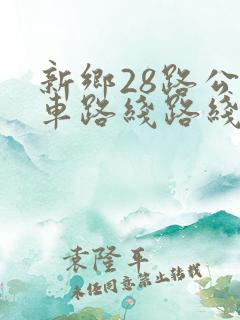 新鄉28路公
車路綫路綫
袁隆平
未经同意禁止转载